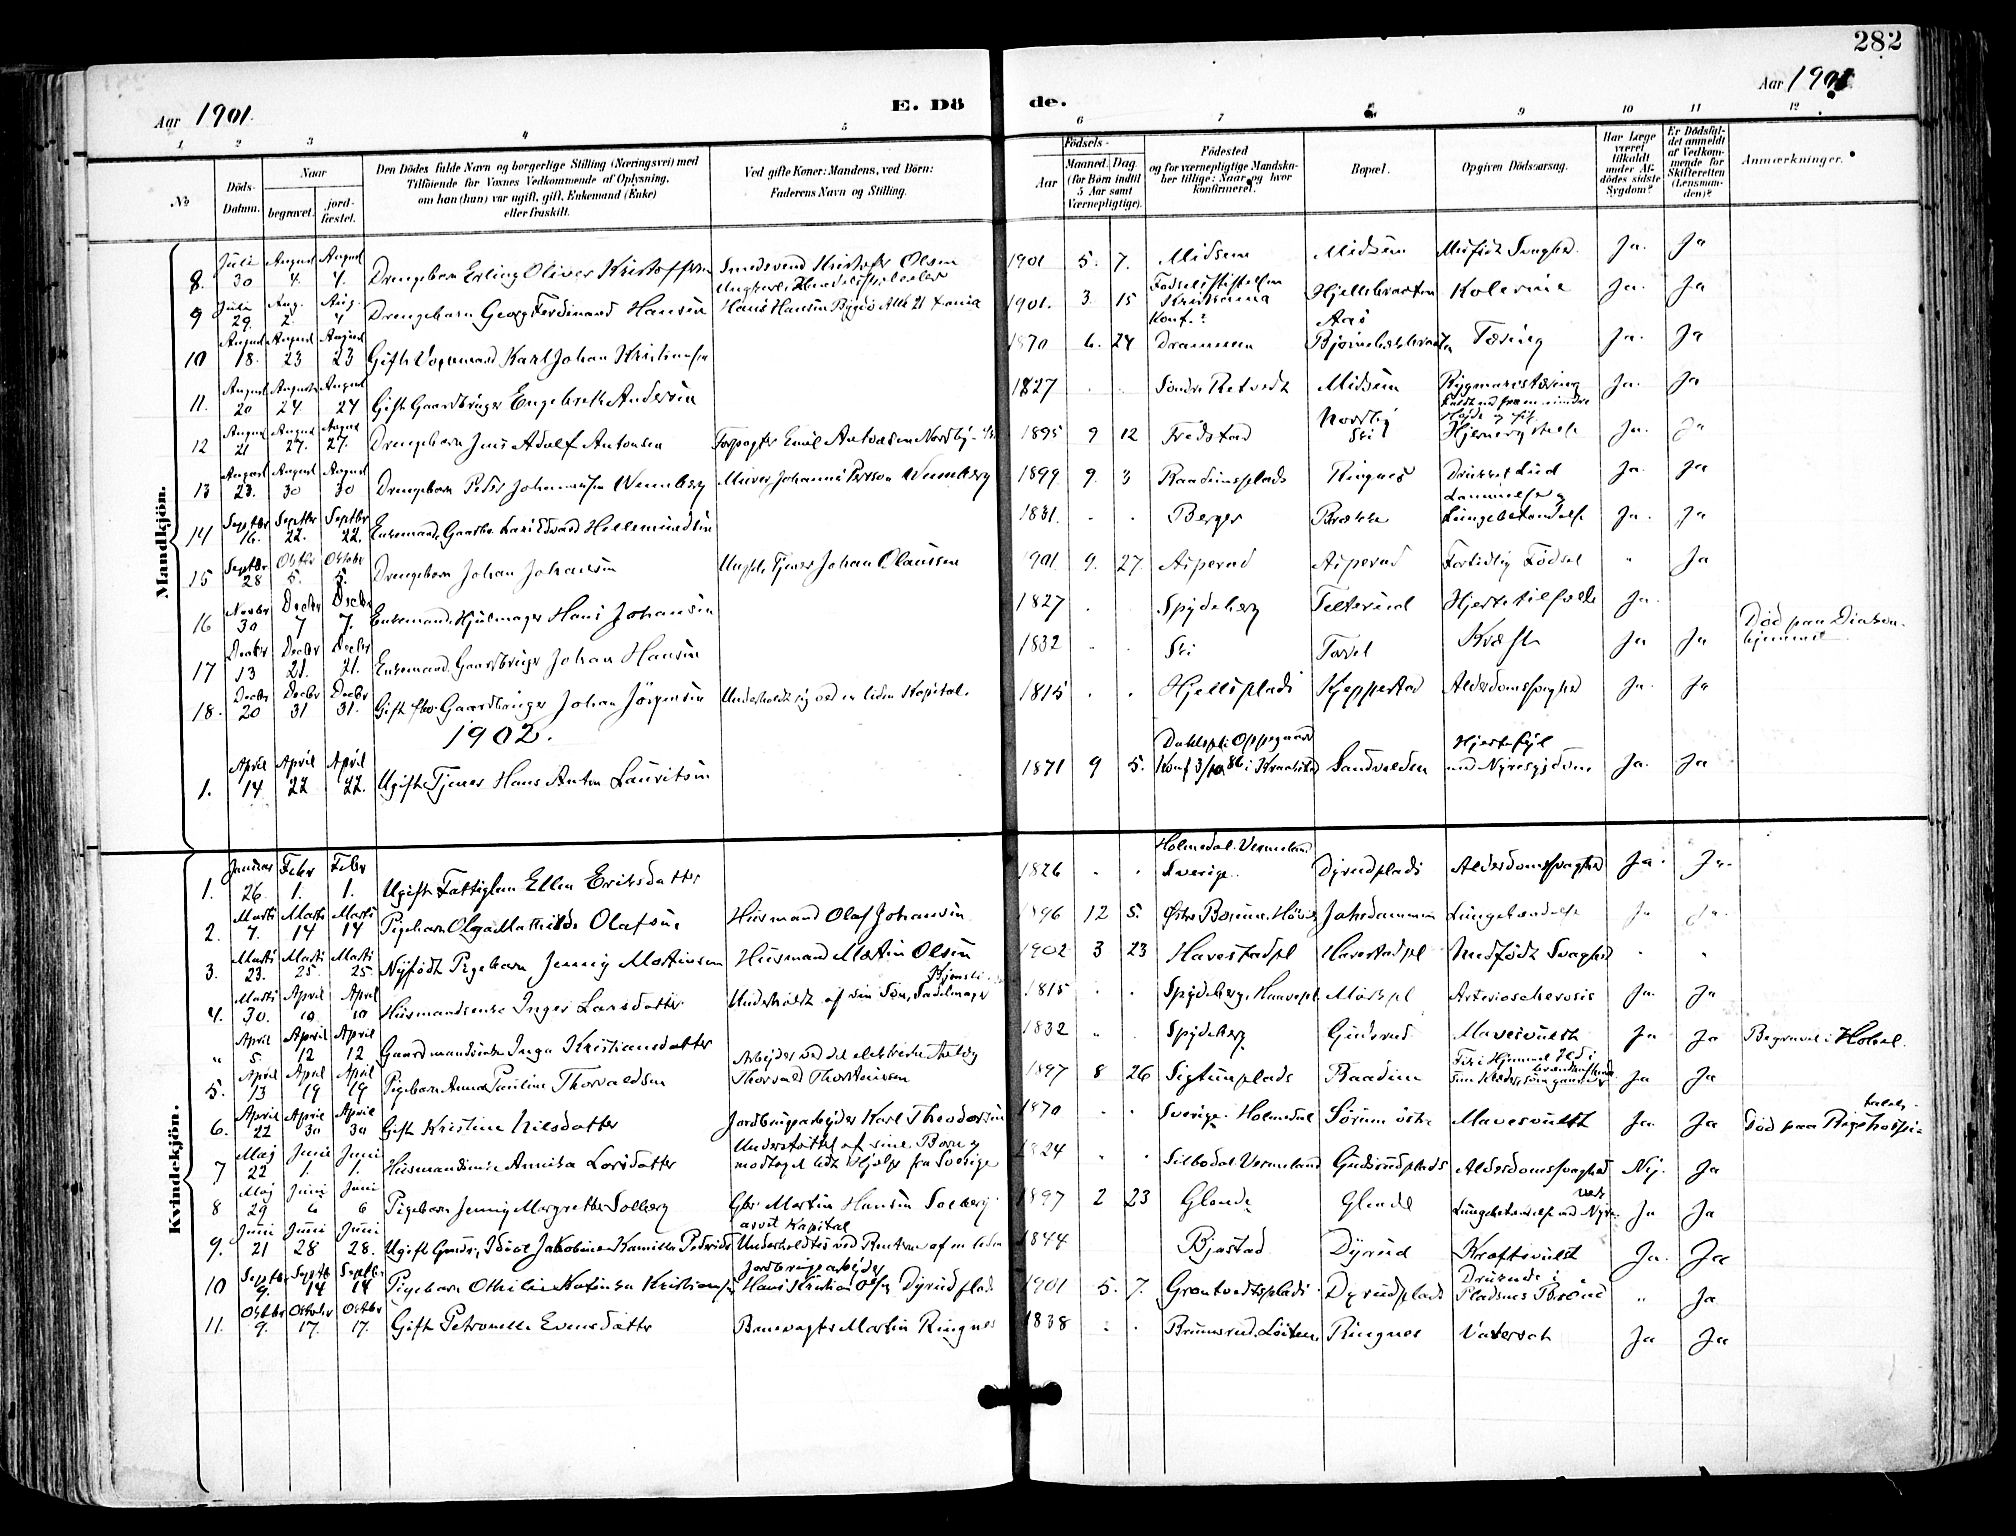 282
Aar 1901.
E. Dö de.
Aar 1901
1 2 3 4 5 6 7 8 9 10 11 12
No
Döds-Datum.
Naar
begravet.
jord-fæstet.
Den Dödes fulde Navn og borgerlige Stilling (Næringsvei) med
Tilföiende for Voxnes Vedkommende af Oplysning,
om han (hun) var ugift, gift, Enkemand (Enke)
eller fraskilt.
Ved gifte Koner: Mandens, ved Börn:
Faderens Navn og Stilling.
Födsels-
Aar
Maaned. Dag.
(for Børn indtil
5 Aar samt
Værnepligtige).
Födested
og for værnepligtige Mandska-
ber tillige: Naar og hvor
konfirmeret.
Bopæl.
Opgiven Dödsaarsag.
Har Læge
været
tilkaldt
under Af-
dödes sidste
Sygdom?
Er Dödsfal-
det anmeldt
af Vedkom-
mende for
Skifteretten
(Lensman-
den)?
Anmærkninger.
Mandkjön.
8. Juli 30 August 4. August 4. Drengebarn Erling Oliver Kristoffersen Smedsvend Kristoffer Olsen 1901 5. 7. Midsem Midsem Medfödt Svaghed. Ja. Ja
9 Juli 29. Aug. 2. Aug. 4 Drengebarn Georg Ferdinand Hansen Hans Hansen Bygdö Alle 21 Krania 1901. 3. 15 Fødselsstiftelsen Kristiania Kolerine Ja. Ja
10 August 18. August 23 August 23 Gift Karl Johan Kristiansen 1870 6. 24 Konf.? Drammen Aas Tæring Ja. Ja
11. August 20 August 24 August 24 Gift Gaardbruger Engebrekt Andersen 1827 . . Søndre Retvedt Midsem Rygmarvstæring Ja. Ja
12 August 21 August 27. August 27. Drengebarn Jens Adolf Antonsen Forpagter Emil Antonsen Nordby 1895 9 12 Fredstad Nordby Ski Ja. Ja
13 August 23. August 30 August 30 Drengebarn Peder Johannesen Wennberg Murer Johannes Persson Wennberg 1899 9. 3 Raadimsplads Ringnes Drukket Lud Ja. Ja
14 Septbr 16. Septbr 22. Septbr 22. Enkemand, Gaardbr. Hellemundsen 1831. . . Berger Brække Lammelse og Lungebetændelse Ja. Ja
15 Septbr 28 Oktbr 5. Oktober 5. Drengebarn Johan Johansen Ungk. Tjener Johan Olaussen 1901 9. 27 Asperud Asperud Fortidlig Födsel " Ja
16 Novbr 30 Decbr 7 Decbr 7. Enkemand, Hjulmager Hans Johansen 1827 . . Spydeberg Ja.
17 Decbr 13 Decbr 21. Decbr 21. Enkemand, Gaardbruger Johan Hansen 1832 . . Ski Kræft Ja Ja Död paa Diakon-
hjemmet
18. Decbr 20 Decbr 31 Decbr 31. Gift fhv. Gaardbruger Johan Jörgensen Underholdt sig ved en liden Kapital. 1815 . . Kjeppestad Alderdomssvaghed Ja. Ja
1902.
1. April 14 April 22 April 22. Ugift Tjener Hans Anton Lauritsen 1871 9 5. Oppegaard Konf 3/10 86 i Kraakstad Sandvolden Hjertefejl med Nyresygdom Ja. Ja
Kvindekjön.
1. Januar 26. Febr 1. Febr 1. Ugift Fattiglem Ellen Eriksdatter 1826 . . Holmedal Vermeland Sverige. Dyrudplads Alderdomssvaghed Ja. Ja.
2. Marts 7. Marts 14 Marts 14 Pigebarn Olga Mathilde Olafsen Husmand Olaf Johansen 1896 12 5. Lungebetændelse Ja Ja.
3. Marts 23. Marts 25 Marts 25 Nyfödt Pigebarn Jenny Martinsen Husmand Martin Olsen 1902 3 23 Haverstadpl Haverstadpl Medfödt Svaghed " "
4. Marts 30. April 10 April 10 Husmandsenke Inger Larsdatter Underholdt af sin Sön, Sadelmager 1815 . . Spydeberg Arteriosclerosis Ja. Ja
" April 5. April 12 April 12 Inga Kristiansdatter 1832 . . Spydeberg Gudsrud Mavesvulst Ja Ja Begravet i Hobøl.
5. April 13 April 19 April 19 Pigebarn Anna Pauline Thorvaldsen Arbejder ved det elektriske Anlæg Thorvald Thorstensen 1897 8 26 Sigtunplads Raadim Ja Ja
6. April 22 April 30 April 30 Gift Kristine Nilsdatter Jordbrugsarbejder Karl Theodorsen 1870 . . Sverige. Holmedal Sörum östre Mavesvulst Ja. Ja Död paa Rigshospi-
talet.
7 Maj 22 Juni 1. Juni 1. Annika Larsdatter Understöttet af sine Börn og modtaget lidt Hjelp fra Sverige 1824 . . Silbodal Vermeland Gudsrudplads Alderdomssvaghed Nej. Ja
8 Maj 29 Juni 6 Juni 6 Pigebarn Jenny Margrethe Solberg Gbr Martin Hansen Solberg 1897 2 23 Glende Glende Ja Ja
9. Juni 21 Juni 28 Juni 28. Ugift Jakobine Kamilla Underholdtes ved Renten af en liden arvet Kapital 1844 Bjastad Dyrud Kræftsvulst Ja. Ja
10 Septbr 9. Septbr 14 Septbr 14 Pigebarn Othilie Katinka Kristiansen Jordbrugsarbejder Hans Kristian Olsen Dyrudplads 1901 5. 7. Grantvedtsplads Dyrudplads Druknede i Pladsens Brönd " Ja
11. Oktbr 9. Oktober 17. Oktbr 17. Gift Petronelle Evensdatter Banevogter Martin Ringnes 1838 . . Löiten Ringnes Vatersot Ja Ja